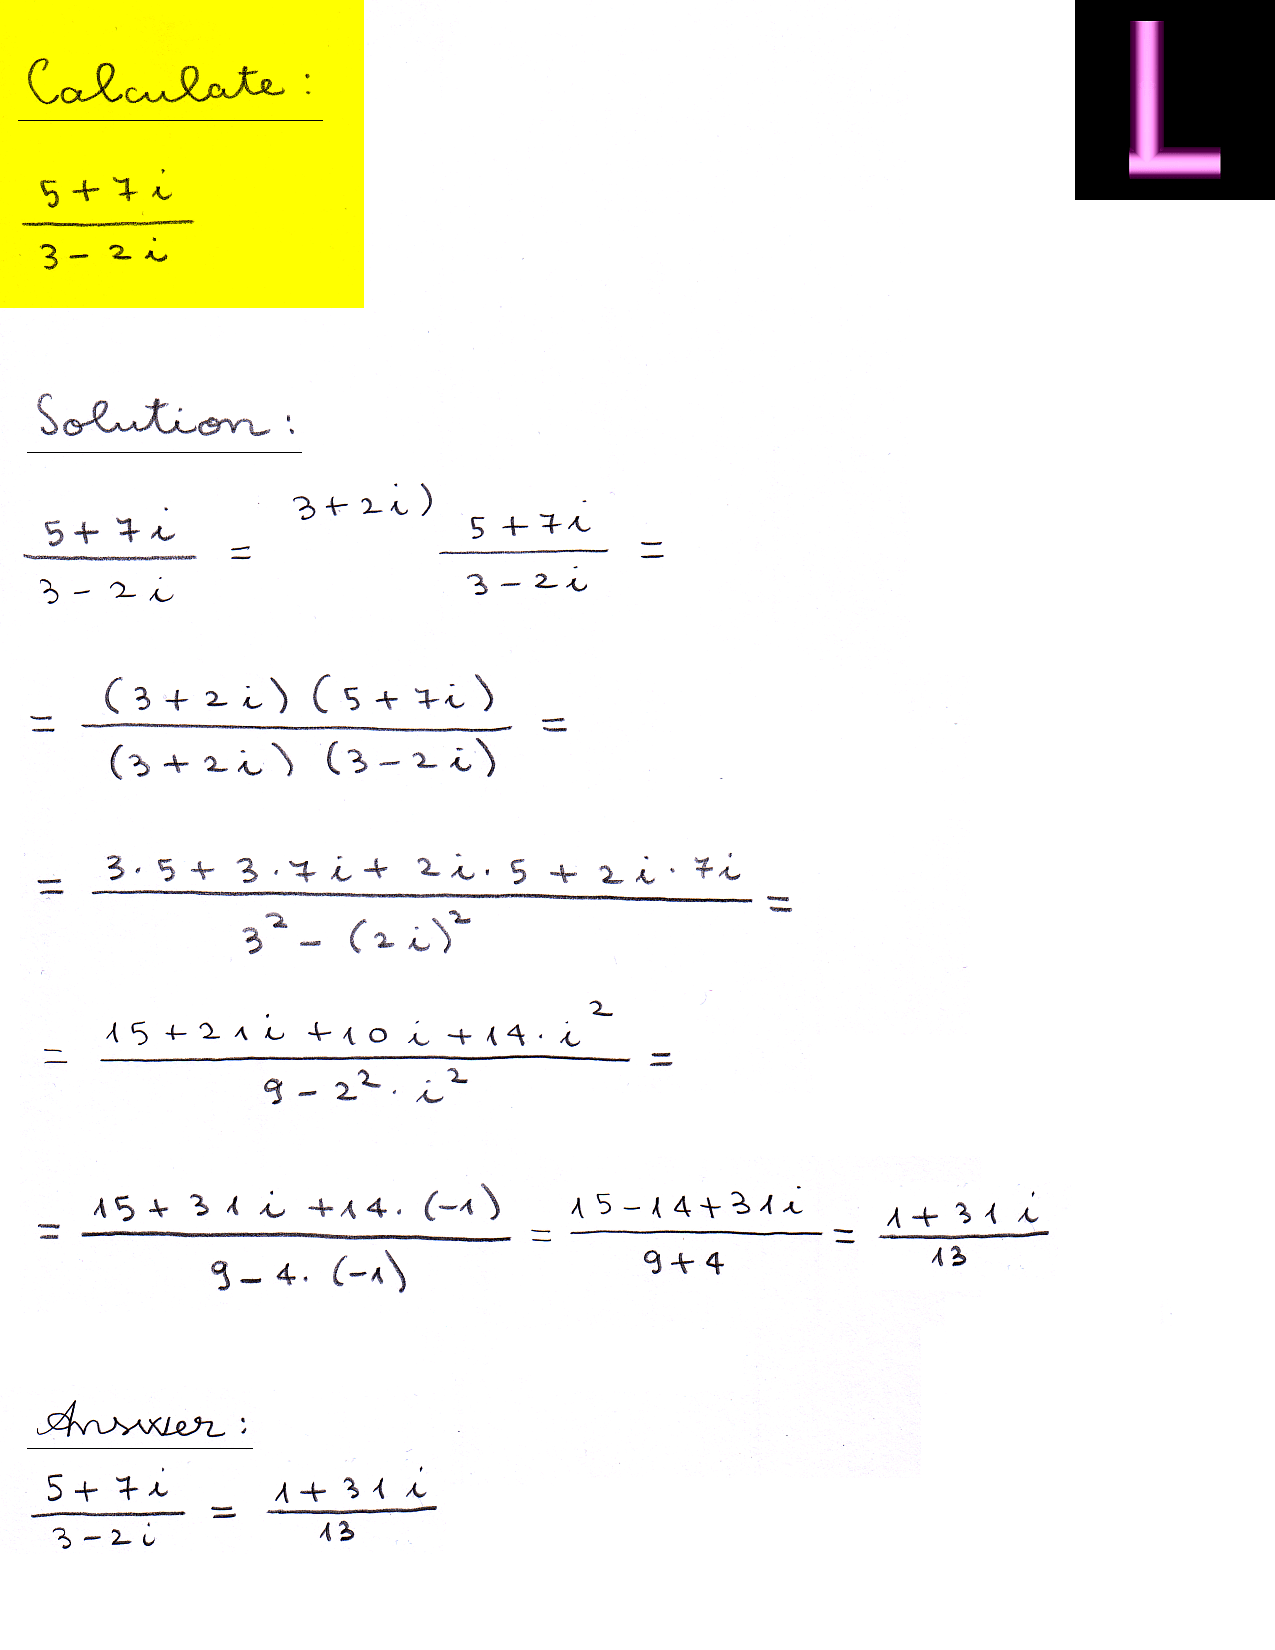 Calculate:
5+7i
3-2i
L
Solution:
5+7i / 3-2i = 3+2i) 5+7i / 3-2i =
= (3+2i)(5+7i) / (3+2i)(3-2i) =
= 3·5+3·7i+2i·5+2i·7i / 3²-(2i)² =
= 15+21i+10i+14·i² / 9-2²·i² =
= 15+31i+14·(-1) / 9-4·(-1) = 15-14+31i / 9+4 = 1+31i / 13
Answer:
5+7i / 3-2i = 1+31i / 13